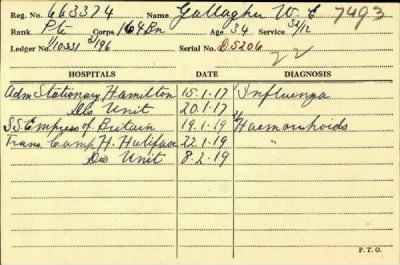 Reg. No. 663374 Name Gallagher W. E 7493
Rank Pte Corps 164 Bn Age 34 Service 32/12
Ledger No. 1/10331 2/196 Serial No. D5206
22
HOSPITALS DATE DIAGNOSIS
Adm Stationary Hamilton 15.1.17 Influenza
Dis Unit 20.1.17
S.S. Empress of Britain 19.1.19 Haemorrhoids
Trans Camp H. Halifax 22.1.19 "
Dis Unit 8.2.19
P.T.O.